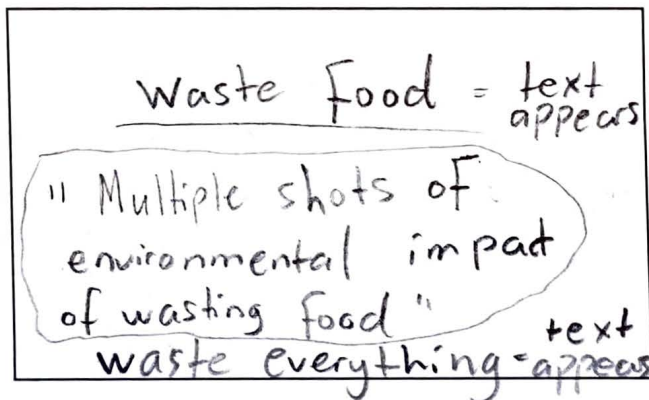 Waste Food = text appears
" Multiple shots of
environmental impact
of wasting food "
waste everything = text appears